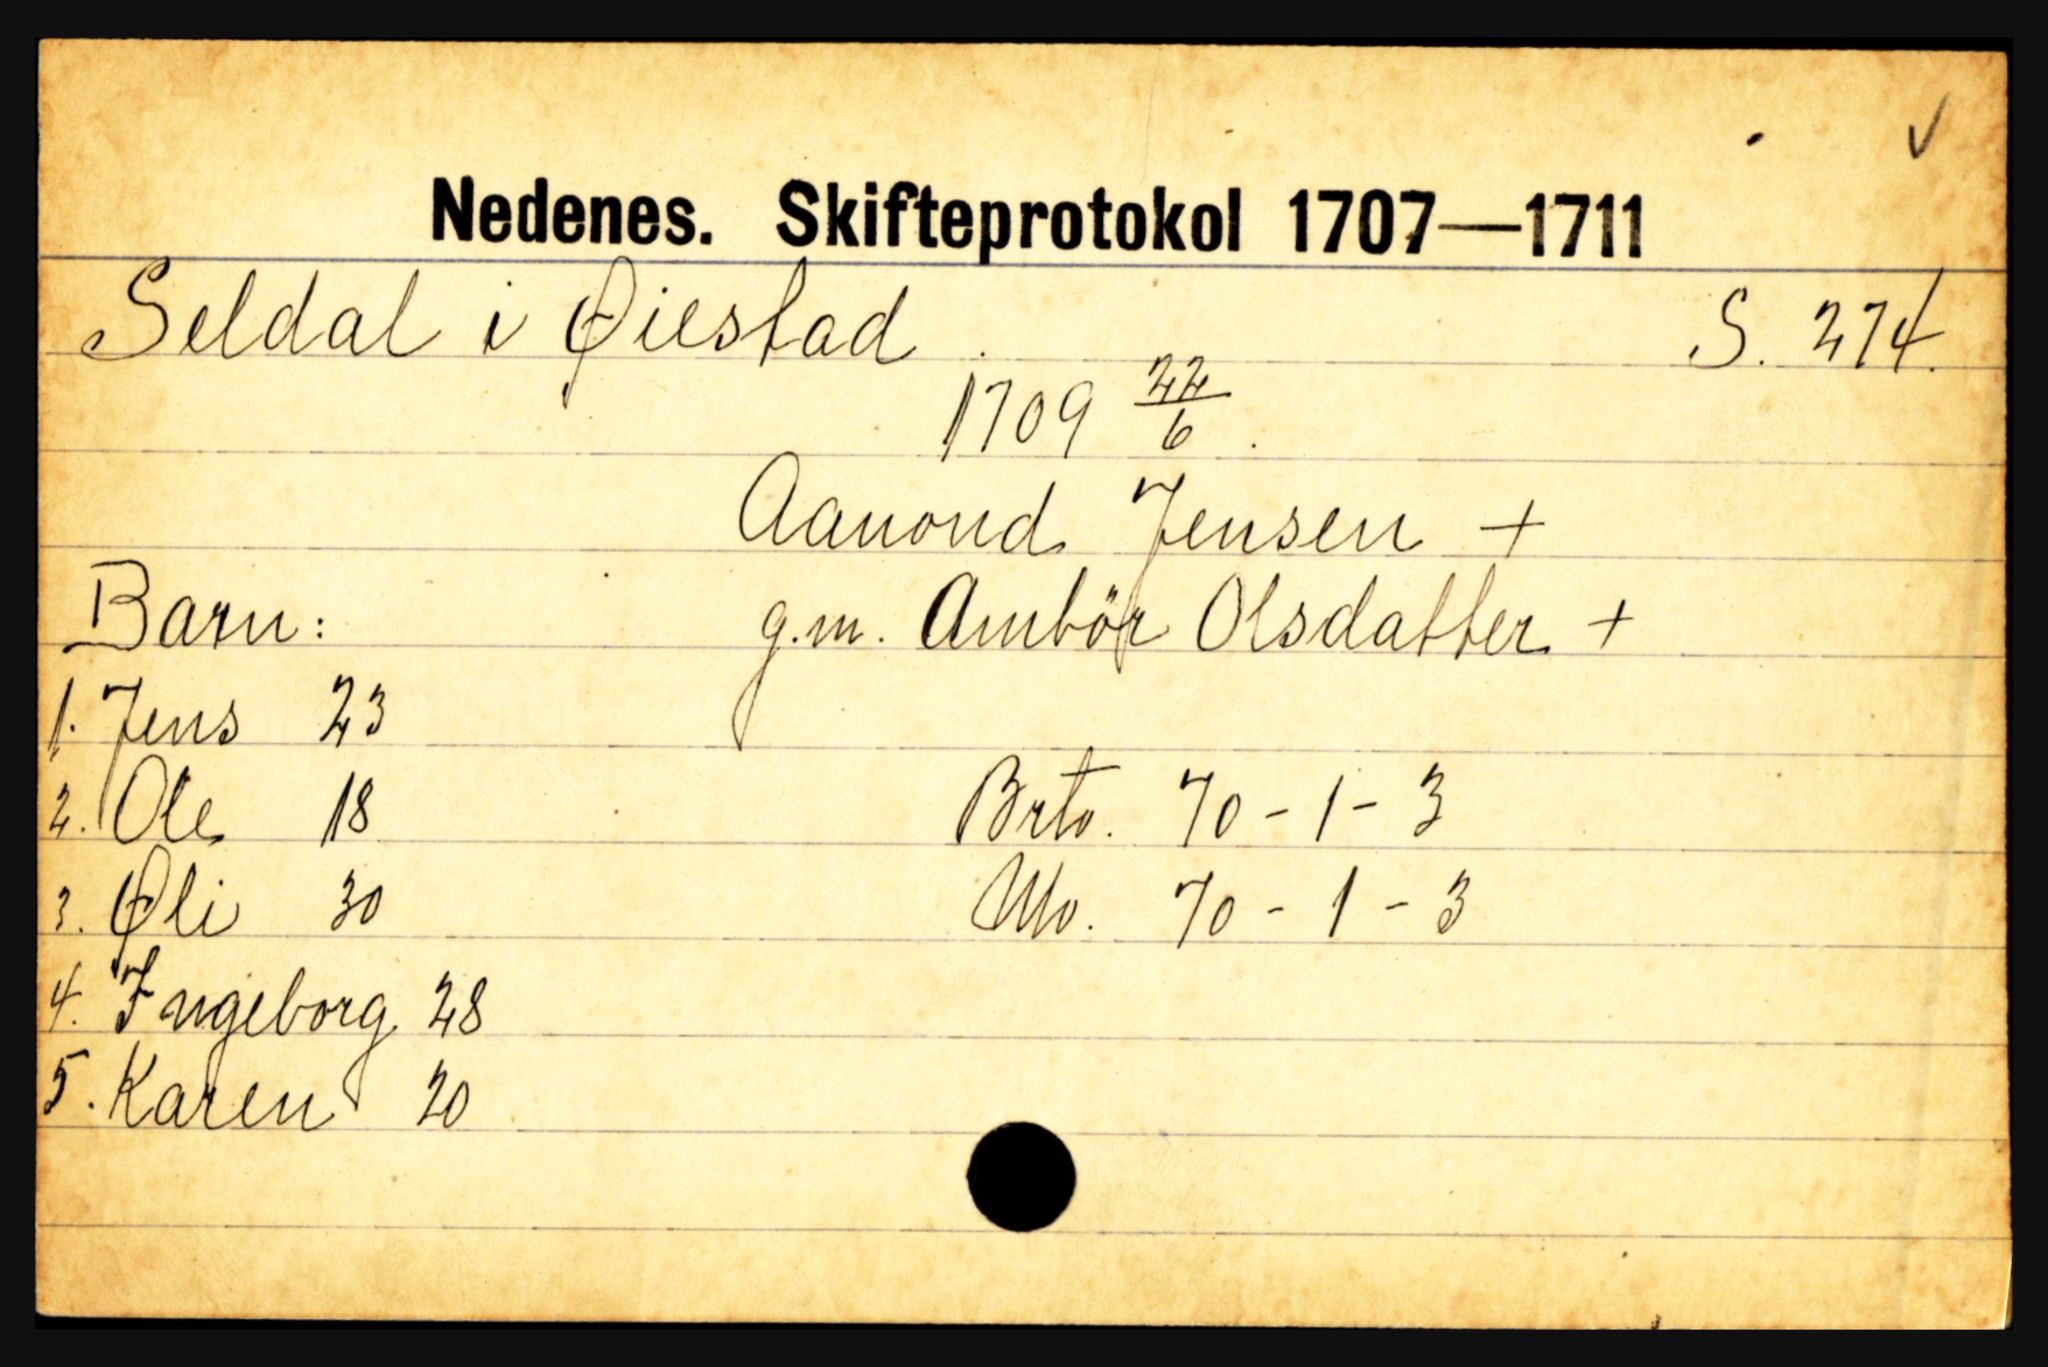 Nedenes. Skifteprotokol 1707—1711
Seldal i Øiestad. S. 274.
1709 22/6.
Aanond Jensen +
Barn: g.m. Ambör Olsdatter +
1. Jens 23
2. Ole 18 Brto. 70 - 1 - 3
3. Øli 30 Uto. 70 - 1 - 3
4. Ingeborg 28
5. Karen 20